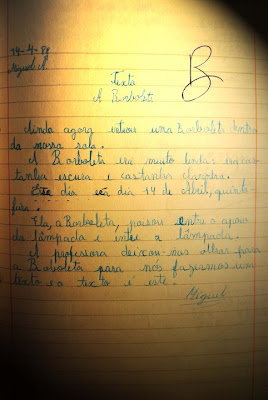 14-4-88
Miguel A.
B
Texto
A Borboleta
Ainda agora entrou uma Borboleta dentro
da nossa sala.
A Borboleta era muito linda: era cas-
tanha escura e castanha clarinha.
Este dia era dia 14 de Abril, quinta-
feira.
Ela, a Borboleta, poisou entre o apoio
da lâmpada e entre a lâmpada.
A professora deixou-nas olhar para
a Borboleta para nós fazermos um
texto e o texto é este.
Miguel